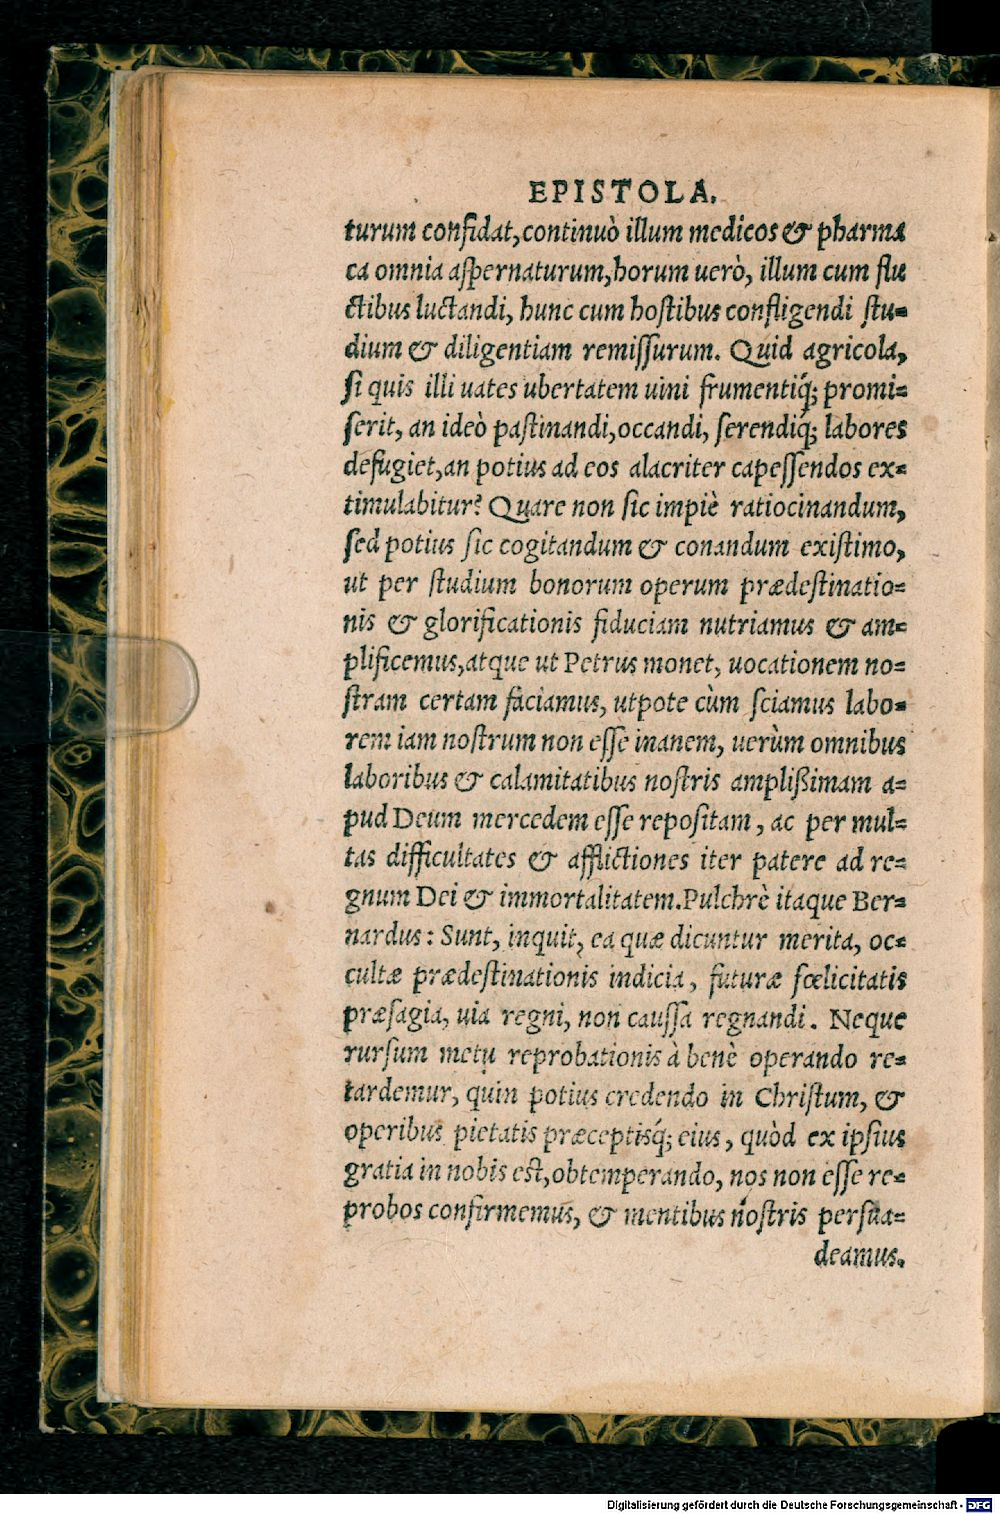 EPISTOLA.
turum confidat, continuò illum medicos & pharma
ca omnia aſpernaturum, horum uerò, illum cum flu
ctibus luctandi, hunc cum hoſtibus confligendi ſtu-
dium & diligentiam remiſſurum. Quid agricola,
ſi quis illi uates ubertatem uini frumentiq́; promi-
ſerit, an ideò paſtinandi, occandi, ſerendiq́; labores
defugiet, an potius ad eos alacriter capeſſendos ex-
timulabitur? Quare non ſic impiè ratiocinandum,
ſed potius ſic cogitandum & conandum exiſtimo,
ut per ſtudium bonorum operum prædeſtinatio-
nis & glorificationis fiduciam nutriamus & am-
plificemus, atque ut Petrus monet, uocationem no-
ſtram certam faciamus, utpote cùm ſciamus labo-
rem iam noſtrum non eſſe inanem, uerùm omnibus
laboribus & calamitatibus noſtris amplißimam a-
pud Deum mercedem eſſe repoſitam, ac per mul-
tas difficultates & afflictiones iter patere ad re-
gnum Dei & immortalitatem. Pulchrè itaque Ber-
nardus: Sunt, inquit, ea quæ dicuntur merita, oc-
cultæ prædeſtinationis indicia, futuræ fœlicitatis
præſagia, uia regni, non cauſſa regnandi. Neque
rurſum metu reprobationis à benè operando re-
tardemur, quin potius credendo in Chriſtum, &
operibus pietatis præceptisq́; eius, quòd ex ipſius
gratia in nobis eſt, obtemperando, nos non eſſe re-
probos confirmemus, & mentibus noſtris perſua-
deamus.
Digitalisierung gefördert durch die Deutsche Forschungsgemeinschaft - DFG